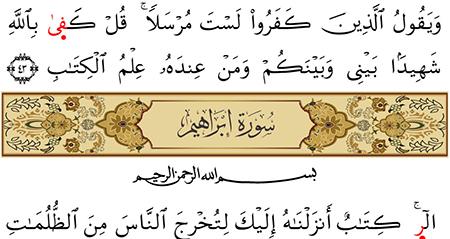 وَيَقُولُ ٱلَّذِينَ كَفَرُواْ لَسْتَ مُرْسَلًاۚ قُلْ كَفِىٰ بِٱللَّهِ
شَهِيدَۢا بَيْنِى وَبَيْنَكُمْ وَمَنْ عِندَهُۥ عِلْمُ ٱلْكِتَٰبِ ٤٣
سُورَةُ إِبْرَاهِيم
بسم الله الرحمن الرحيم
الٓرِۚ كِتَٰبٌ أَنزَلْنَٰهُ إِلَيْكَ لِتُخْرِجَ ٱلنَّاسَ مِنَ ٱلظُّلُمَٰتِ